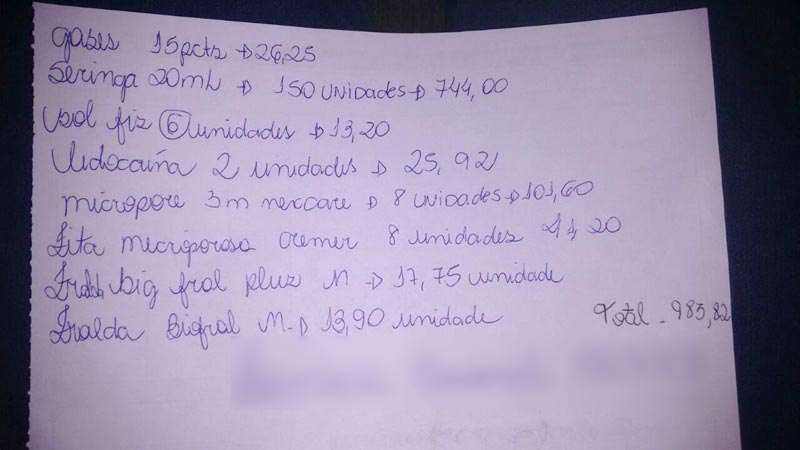 gases 15pcts → 26,25
Seringa 20mL → 150 unidades → 744,00
sol fiz 6 unidades → 13,20
Lidocaína 2 unidades → 25,92
micropore 3m nexcare → 8 unidades → 101,60
Fita microporosa cremer 8 unidades 41,20
Fralda big fral pluz M → 17,75 unidade
Fralda Bigfral M → 13,90 unidade
Total - 983,82